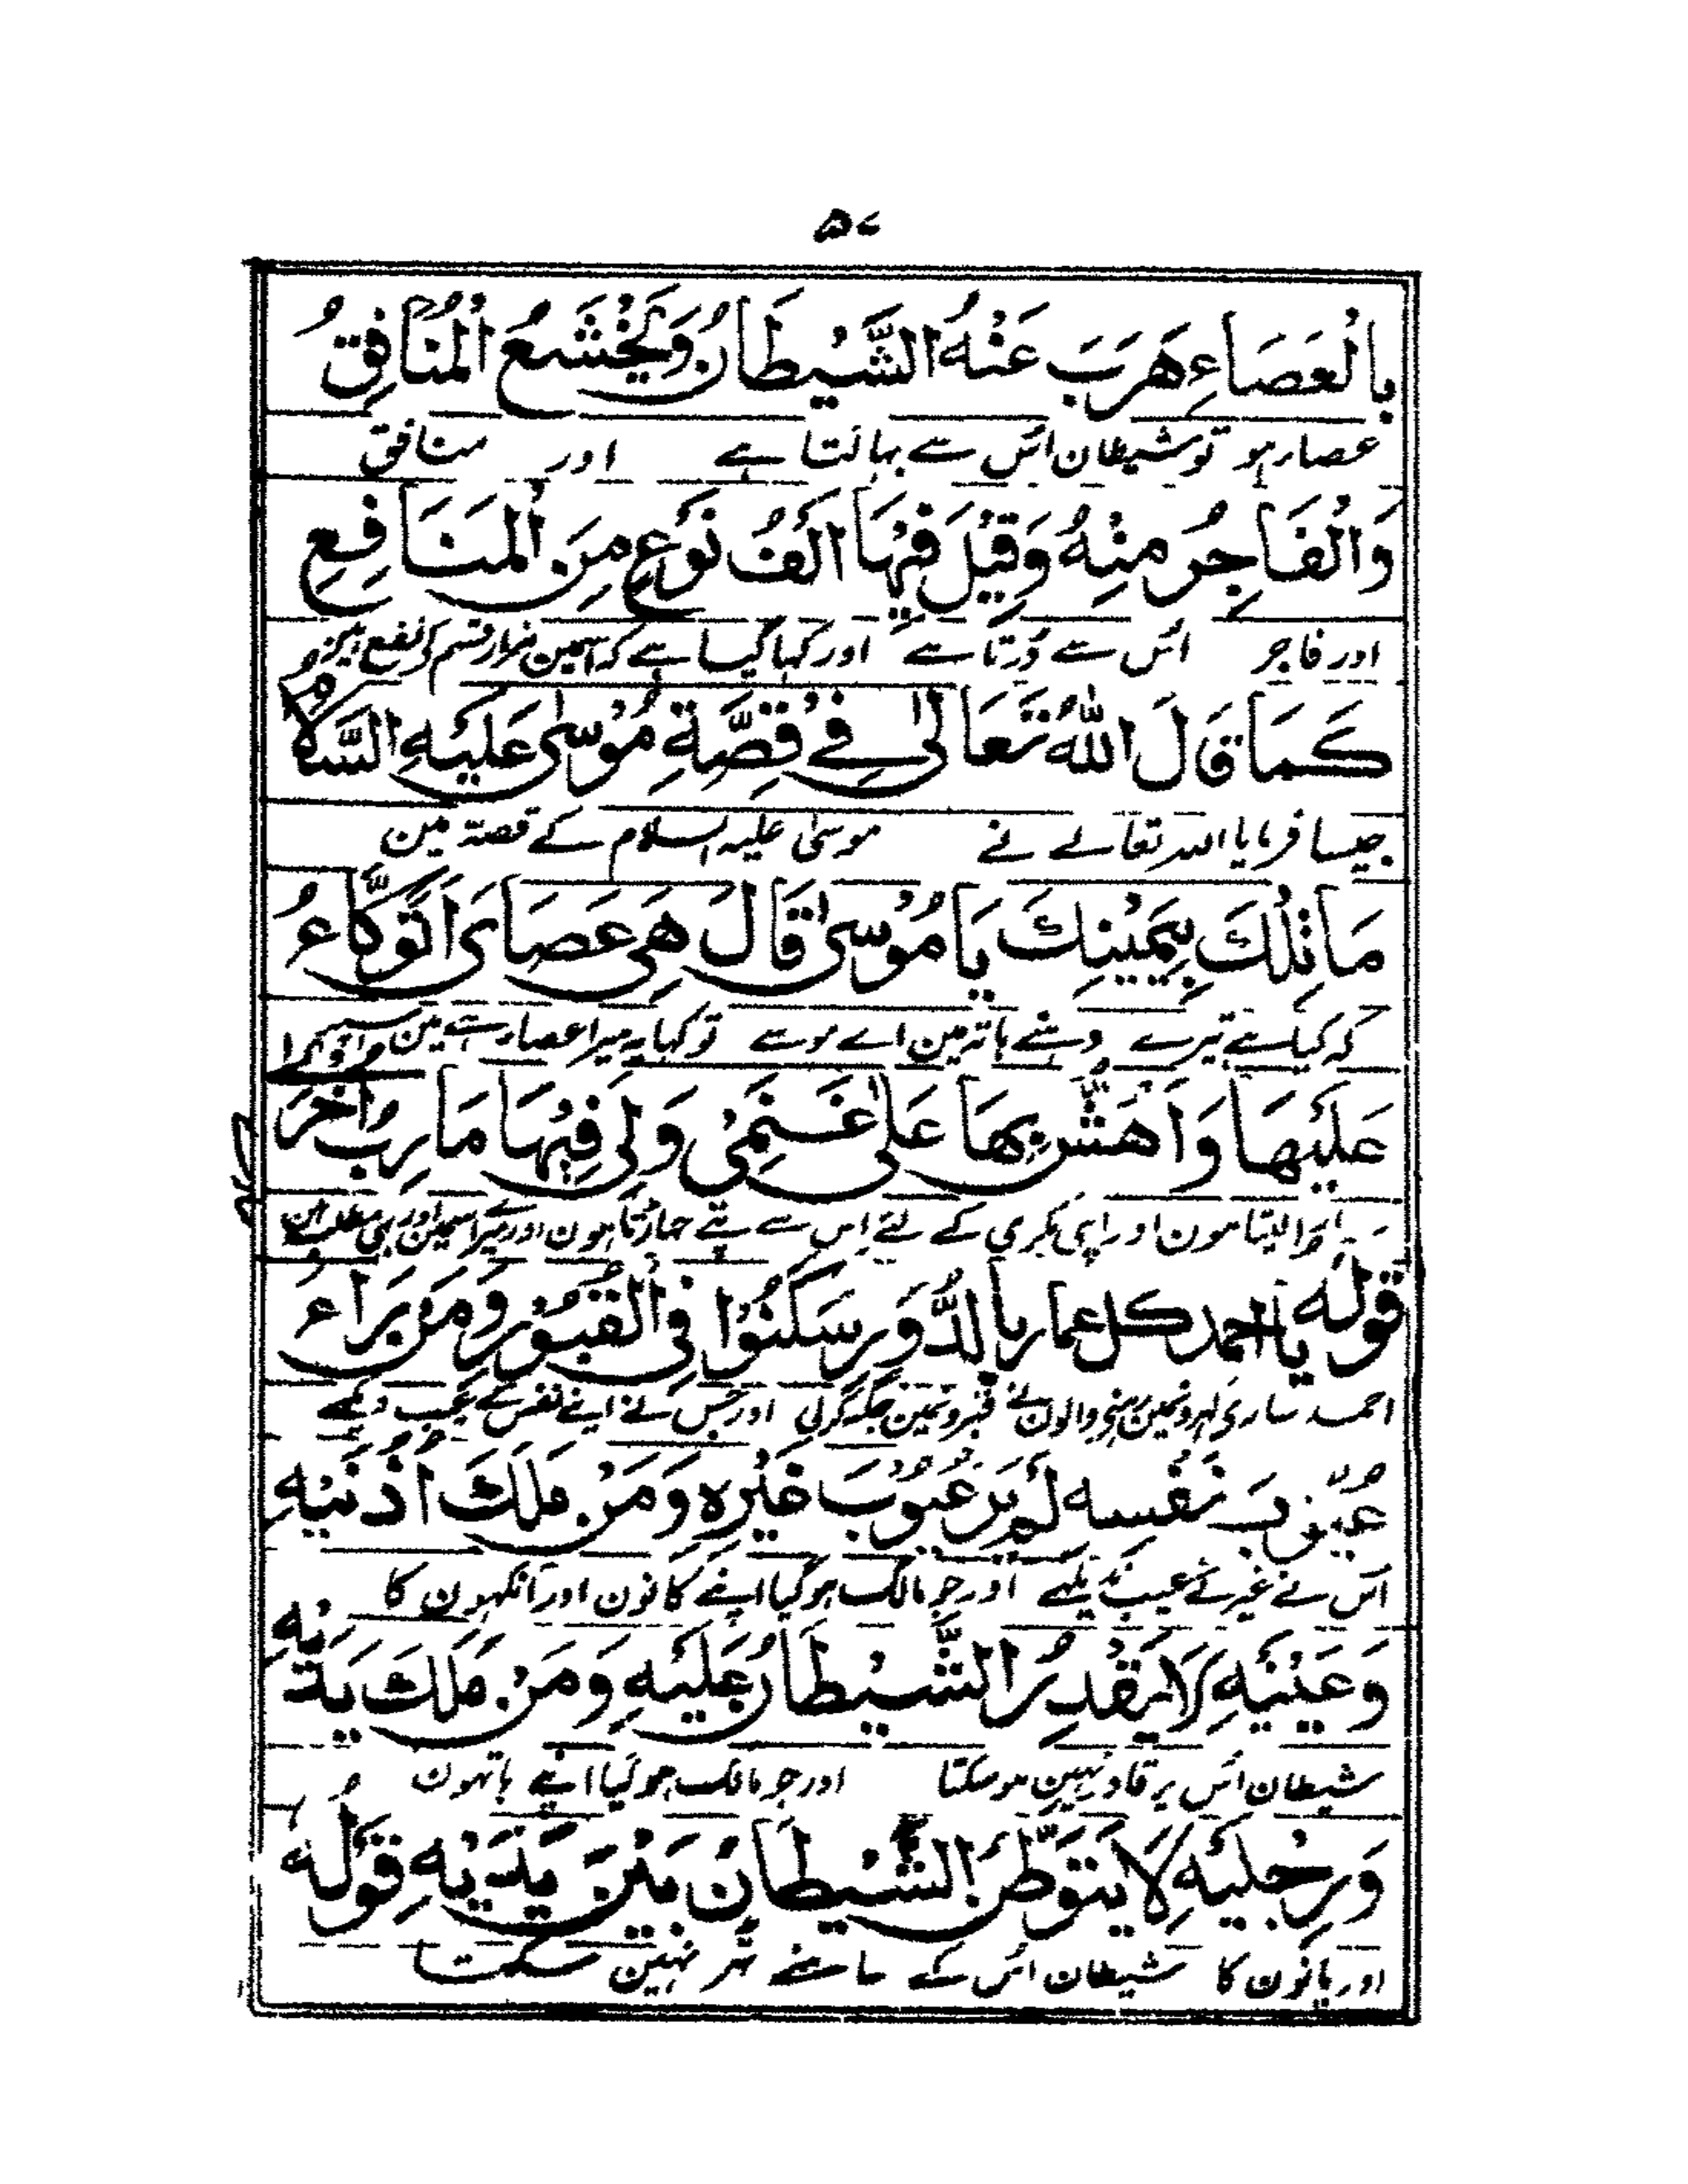 ۵۷
بِالْعَصَاءِ هَرَبَ عَنْهُ الشَّيْطَانُ وَيَخْشَعُ الْمُنَافِقُ
عصار ہو تو شیطان اُس سے بہاگتا ہے اور منافق
وَالْفَاجِرُ مِنْهُ وَقِيْلَ فِيْهَا اَلْفُ نَوْعٍ مِنَ الْمَنَافِعِ
اور فاجر اُس سے ڈرتا ہے اور کہا گیا ہے کہ اسمین ہزار قسم کی نفع ہیں
كَمَا قَالَ اللّٰهُ تَعَالٰى فِيْ قِصَّةِ مُوْسٰى عَلَيْهِ السَّلَامُ
جیسا فرمایا اللہ تعالے نے موسیٰ علیہ السلام کے قصّہ مین
مَا تِلْكَ بِيَمِيْنِكَ يَا مُوْسٰى قَالَ هِيَ عَصَايَ اَتَوَكَّاءُ
کہ کیا ہے تیرے دہنے ہاتہ مین اے موسے تو کہا یہ میرا عصار ہے مین
عَلَيْهَا وَاَهُشُّ بِهَا عَلٰى غَنَمِيْ وَلِيَ فِيْهَا مَاٰرِبُ اُخْرٰى
لیتا ہون اور اپنی بکری کے لئے اس سے پتے جہاڑتا ہون اور میرا اسمین اور بہی مطلب ہین
قَوْلُهُ يَا احمد كل عمار بالدُّوَرِ سَكَنُوْا فِي الْقُبُوْرِ وَمَنْ بَرَاءَ
احمد ساری گہرونمین رہنے والون نے قبرونمین جگہ کرلی اور جس نے اپنے نفس کے عیب دیکہے
عُيُوْبَ نَفْسِه لَمْ يَرَ عُيُوْبَ غَيْرِهِ وَمَنْ مَلَكَ اُذُنَيْهِ
اُس نے غیر کے عیب نہ دیکہے اور جو مالک ہو گیا اپنے کانون اور آنکہون کا
وَعَيْنَيْهِ لَا يَقْدِرُ الشَّيْطَانُ عَلَيْهِ وَمَنْ مَلَكَ يَدَيْهِ
شیطان اُس پر قادر نہین ہو سکتا اور جو مالک ہو گیا اپنے ہاتہون
وَرِجْلَيْهِ لَا يَتَوَطَّنُ الشَّيْطَانُ بَيْنَ يَدَيْهِ قَوْلُهُ
اور پانون کا شیطان اُس کے سامنے ٹہر نہین سکتا